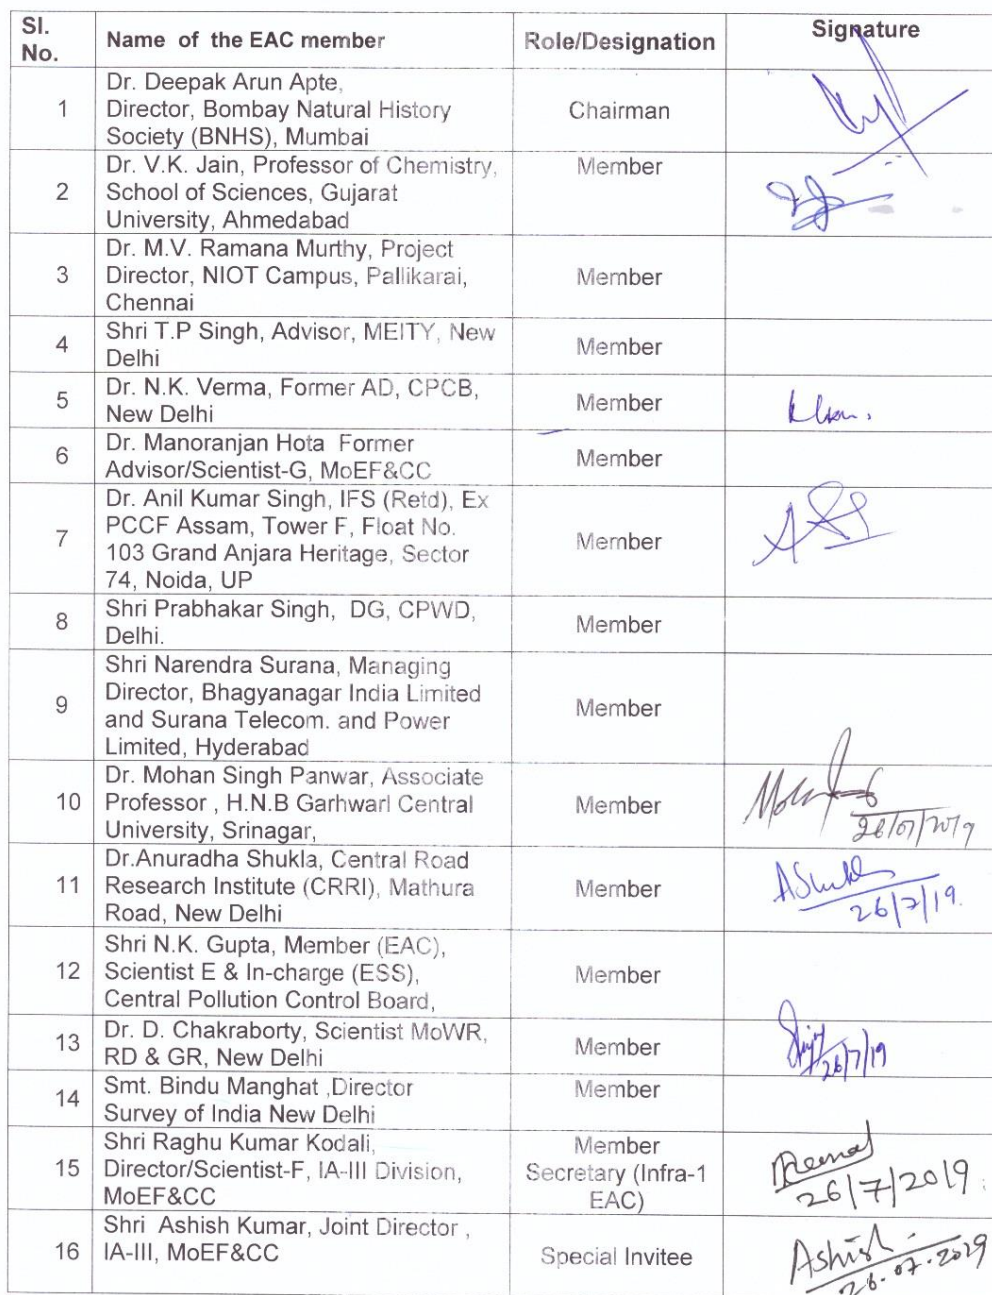 Sl.
No.
Name of the EAC member
Role/Designation
Signature
1
Dr. Deepak Arun Apte,
Director, Bombay Natural History
Society (BNHS), Mumbai
Chairman
2
Dr. V.K. Jain, Professor of Chemistry,
School of Sciences, Gujarat
University, Ahmedabad
Member
3
Dr. M.V. Ramana Murthy, Project
Director, NIOT Campus, Pallikarai,
Chennai
Member
4
Shri T.P Singh, Advisor, MEITY, New
Delhi
Member
5
Dr. N.K. Verma, Former AD, CPCB,
New Delhi
Member
6
Dr. Manoranjan Hota Former
Advisor/Scientist-G, MoEF&CC
Member
7
Dr. Anil Kumar Singh, IFS (Retd), Ex
PCCF Assam, Tower F, Float No.
103 Grand Anjara Heritage, Sector
74, Noida, UP
Member
8
Shri Prabhakar Singh, DG, CPWD,
Delhi.
Member
9
Shri Narendra Surana, Managing
Director, Bhagyanagar India Limited
and Surana Telecom. and Power
Limited, Hyderabad
Member
10
Dr. Mohan Singh Panwar, Associate
Professor , H.N.B Garhwarl Central
University, Srinagar,
Member
26/07/2019
11
Dr.Anuradha Shukla, Central Road
Research Institute (CRRI), Mathura
Road, New Delhi
Member
AShukla
26/7/19.
12
Shri N.K. Gupta, Member (EAC),
Scientist E & In-charge (ESS),
Central Pollution Control Board,
Member
13
Dr. D. Chakraborty, Scientist MoWR,
RD & GR, New Delhi
Member
26/7/19
14
Smt. Bindu Manghat ,Director
Survey of India New Delhi
Member
15
Shri Raghu Kumar Kodali,
Director/Scientist-F, IA-III Division,
MoEF&CC
Member
Secretary (Infra-1
EAC)
26/7/2019
16
Shri Ashish Kumar, Joint Director ,
IA-III, MoEF&CC
Special Invitee
Ashish
26.07.2019